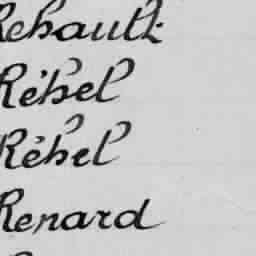 Rehault
Rébel
Rébel
Renard